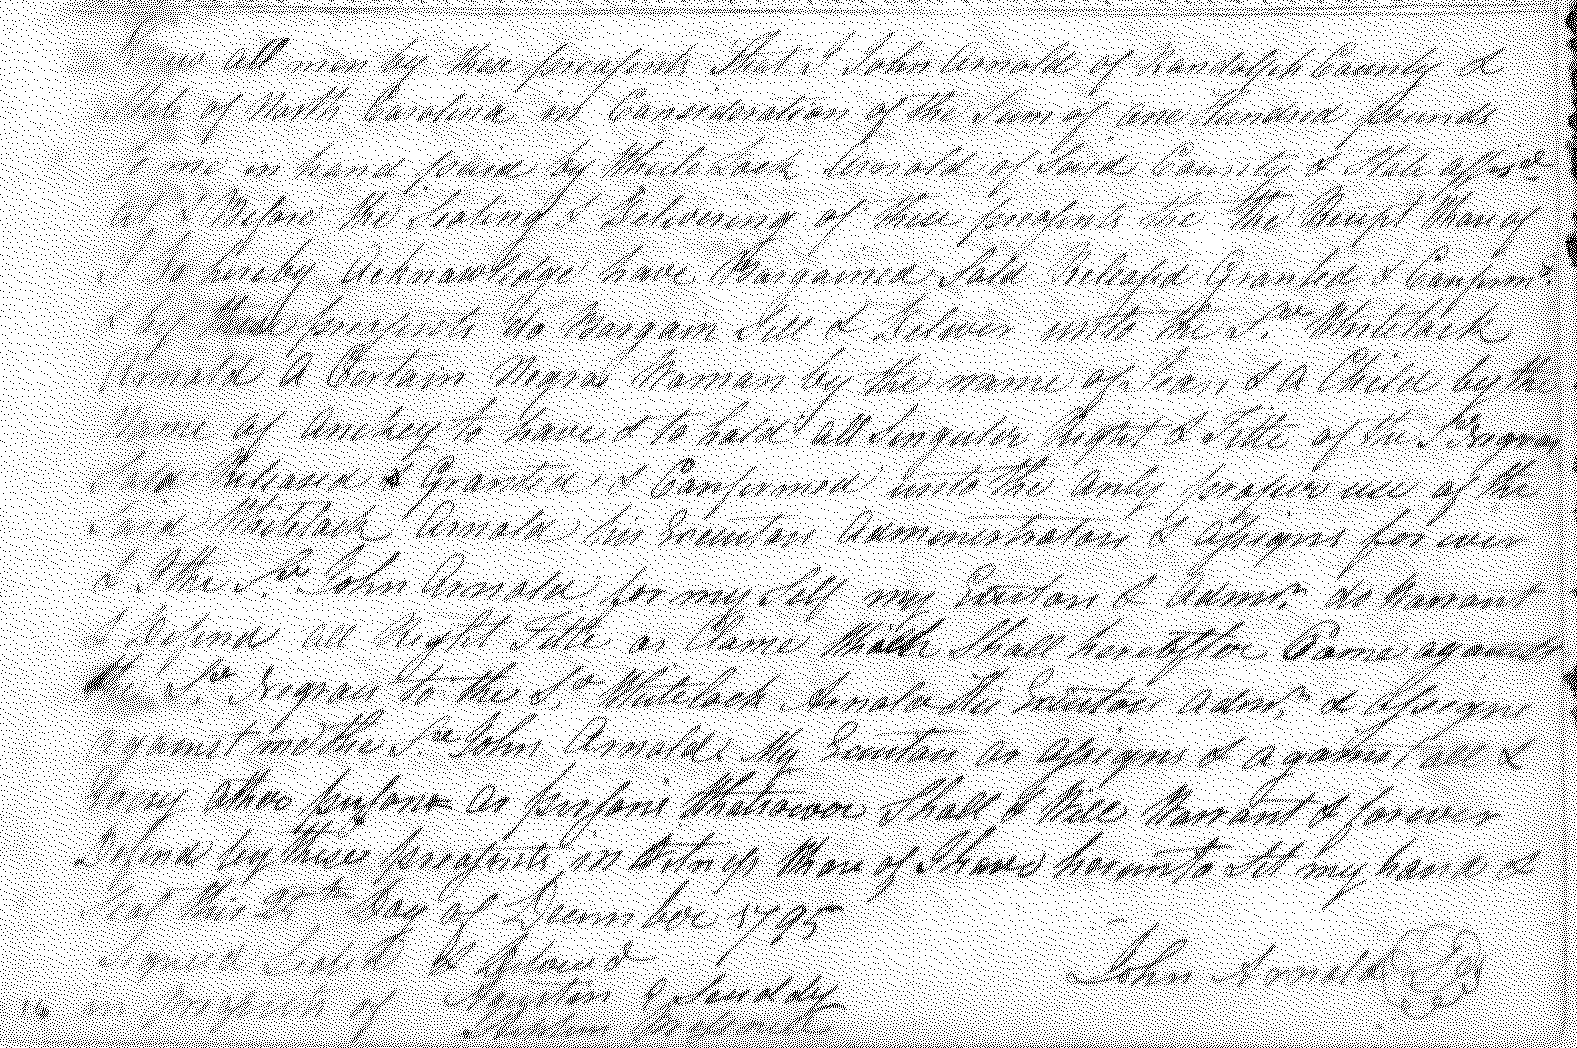 Know all men by these presents that I John Arnold of Randolph County &
State of North Carolina in Consideration of the Sum of one Hundred pounds
to me in hand paid by Whitlock Arnold of Said County & State afisd
at & Before the Sealing & Delivering of these presents the the Receipt Whareof
I do hereby acknowledge have Bargained Sold Released Granted & Confirmd
& by these presents do Bargain Sell & Deliver unto the Sd Whitlock
Arnold A Certain Negroe Woman by the name of & A Child by the
Name of to have & to hold all Singular Right & Title of the Sd
Released & Granted & Confirmed unto the only proper use of the
Said Whitlock Arnold his Executors Administrators & assigns for ever
& I the Sd John Arnold for my Self my Exectors & Admrs do Warrant
& Defend all Right Title or Clame that Shall hereafter Come against
the Sd Negroes to the Sd Whitelock Arnold His Executors Admrs & Assigns
against me the Sd John Arnold My Executors or assigns & against all &
Every other person or persons Whatsoever Shall & Will Warrant & forever
Defend by these presents in Witness Whare of I have hereunto Set my hand &
Seal this day of December 1795
Signed Seald & John Arnold
in presents of